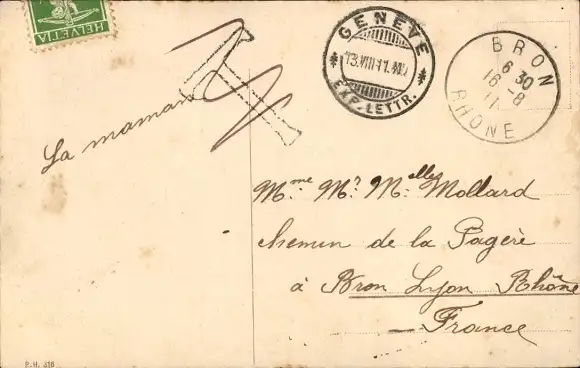 HELVETIA
GENÈVE
13.VIII.11.
EXP. LETTR.
BRON
6 30
16 - 8
11
RHONE
La maman
Mme Mr Melles Mollard
chemin de la Pagère
à Bron Lyon Rhône
France
P.H. 316